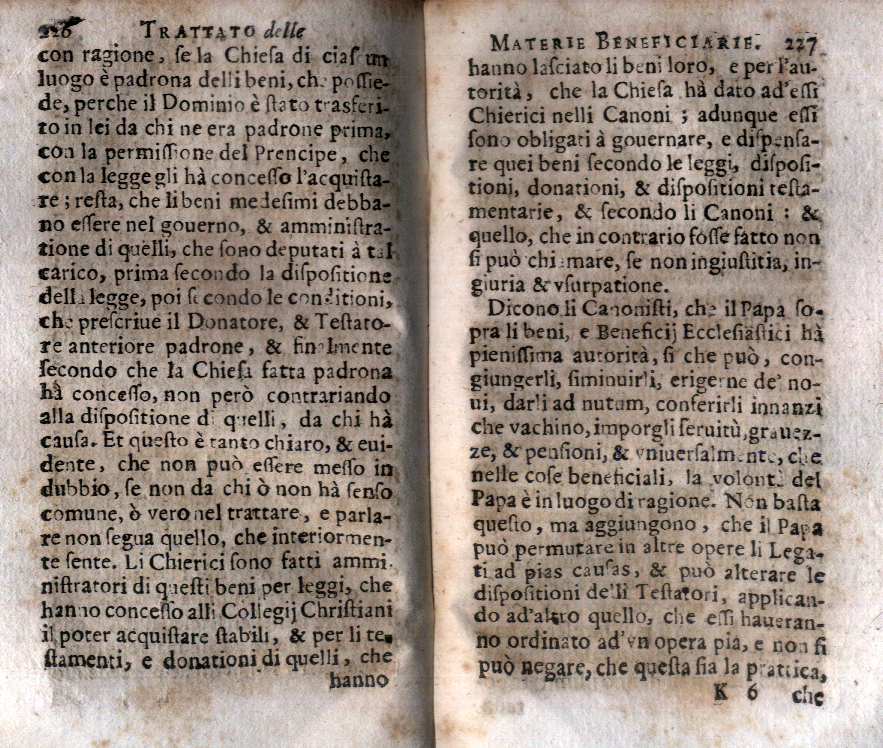 226 TRATTATO delle
con ragione, ſe la Chieſa di ciaſcun
luogo è padrona delli beni, che poſſie-
de, perche il Dominio è ſtato trasferi-
to in lei da chi ne era padrone prima,
con la permiſſione del Prencipe, che
con la legge gli hà conceſſo l'acquiſta-
re; reſta, che li beni medeſimi debba-
no eſſere nel gouerno, & amminiſtra-
tione di quelli, che ſono deputati à tal
carico, prima ſecondo la diſpoſitione
della legge, poi ſecondo le conditioni,
che preſcriue il Donatore, & Teſtato-
re anteriore padrone, & finalmente
ſecondo che la Chieſa fatta padrona
hà conceſſo, non però contrariando
alla diſpoſitione di quelli, da chi hà
cauſa. Et queſto è tanto chiaro, & eui-
dente, che non può eſſere meſſo in
dubbio, ſe non da chi ò non hà ſenſo
comune, ò vero nel trattare, e parla-
re non ſegua quello, che interiormen-
te ſente. Li Chierici ſono fatti ammi-
niſtratori di queſti beni per leggi, che
hanno conceſſo alli Collegij Chriſtiani
il poter acquiſtare ſtabili, & per li te-
ſtamenti, e donationi di quelli, che
hanno
MATERIE BENEFICIARIE. 227
hanno laſciato li beni loro, e per l'au-
torità, che la Chieſa hà dato ad'eſſi
Chierici nelli Canoni; adunque eſſi
ſono obligati à gouernare, e diſpenſa-
re quei beni ſecondo le leggi, diſpoſi-
tioni, donationi, & diſpoſitioni teſta-
mentarie, & ſecondo li Canoni: &
quello, che in contrario foſſe fatto non
ſi può chiamare, ſe non ingiuſtitia, in-
giuria & vſurpatione.
Dicono li Canoniſti, che il Papa ſo-
pra li beni, e Beneficij Eccleſiaſtici hà
pieniſſima autorità, ſi che può, con-
giungerli, ſiminuirli, erigerne de' no-
ui, darli ad nutum, conferirli innanzi
che vachino, imporgli ſeruitù, grauez-
ze, & penſioni, & vniuerſalmente, che
nelle coſe beneficiali, la volontà del
Papa è in luogo di ragione. Non baſta
queſto, ma aggiungono, che il Papa
può permutare in altre opere li Lega-
ti ad pias cauſas, & può alterare le
diſpoſitioni delli Teſtatori, applican-
do ad'altro quello, che eſſi haueran-
no ordinato ad'vn opera pia, e non ſi
può negare, che queſta ſia la prattica,
K 6 che